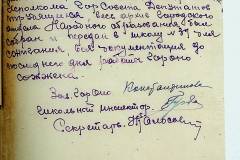 исполкома Гор Совета Депутатов
трудящихся весь архив Городского
отдела Народного образования был
собран и передан в школу № 37 для
сожжения. Вся документация до
последнего дня работы Гороно
сожжена.
Зав. ГорОно
Школьный инспектор
Секретарь